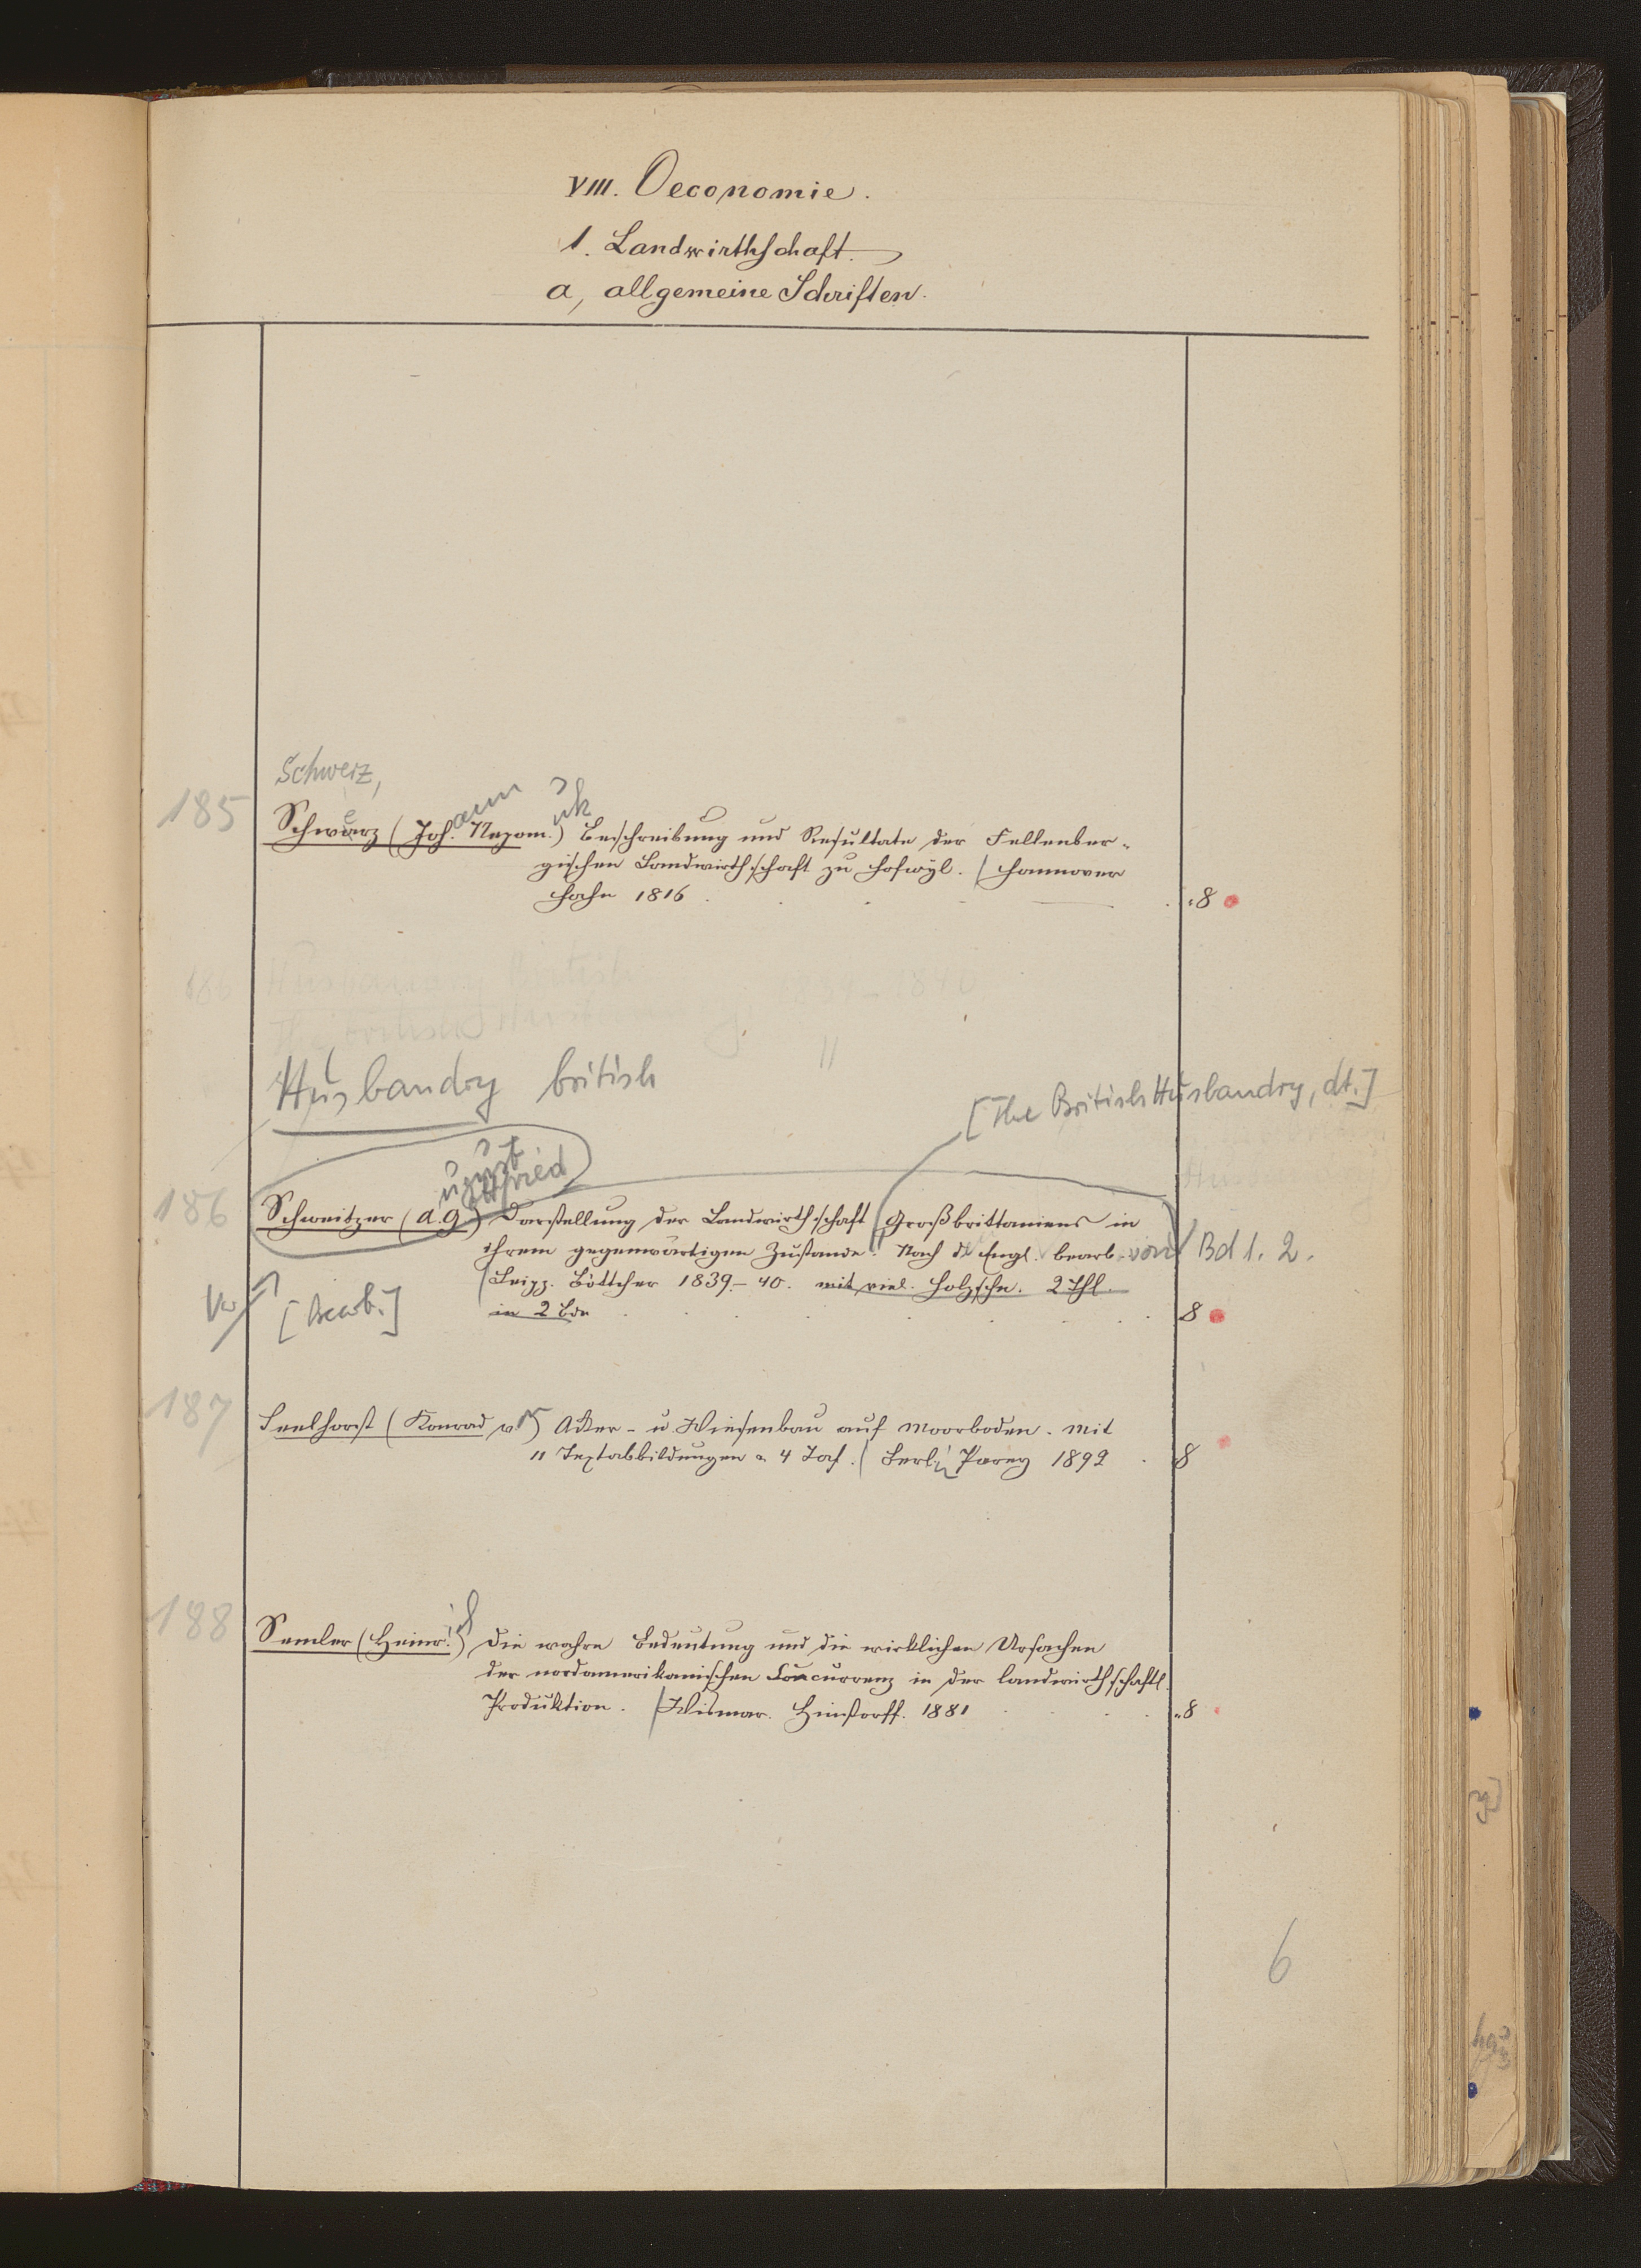 VIII. Oeconomie.
1. Landwirthschaft.
a, allgemeine Schriften.
Schweiz,
185
Schwerz (Johann Nepomuk) Beschreibung und Resultate der Fellenber-
gischen Landwirthschaft zu Hofwyl. / Hannover
Hahn 1816 . 8
186
1839-1840
Husbandry british
[The British Husbandry, dt.]
ugust
ottfried
186 Schweitzer (A.G.) Darstellung der Landwirthschaft Großbrittaniens in
ihrem gegenwärtigen Zustande. Nach d. Engl. bearb. von Bd 1. 2.
Leipz. Böttcher 1839-40. mit viel. Holzschn. 2 Thl.
[Bearb.] in 2 Bde 8
187 Seelhorst (Konrad v.) Acker- u Wiesenbau auf Moorboden. Mit
11 Textabbildungen u. 4 Taf. / Berlin Parey 1892 8
188 Semler (Heinrich) Die wahre Bedeutung und die wirklichen Ursachen
der nordamerikanischen Concurrenz in der landwirthschaftl.
Produktion. / Wismar. Hinstorff. 1881 8
6